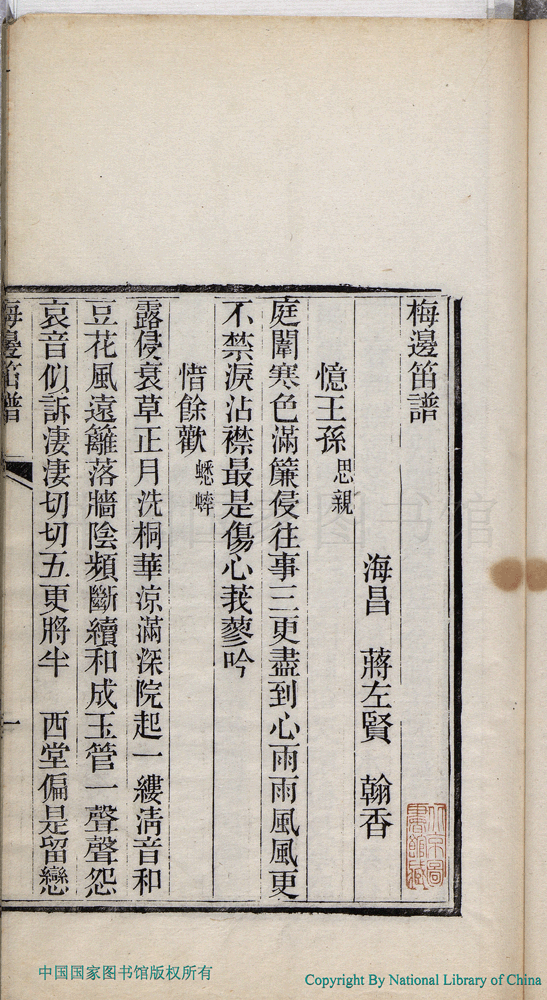 梅邊笛譜
海昌 蔣左賢 翰香
憶王孫 思親
庭闈寒色滿簾侵往事三更盡到心雨雨風風更
不禁淚沾襟最是傷心莪蓼吟
惜餘歡 蟋蟀
露侵衰草正月洗桐華涼滿深院起一縷淸音和
豆花風遠籬落牆陰頻斷續和成玉管一聲聲怨
哀音似訴凄凄切切五更將半 西堂偏是留戀
梅邊笛譜 一
北京圖書館藏
中国国家图书馆版权所有
Copyright By National Library of China